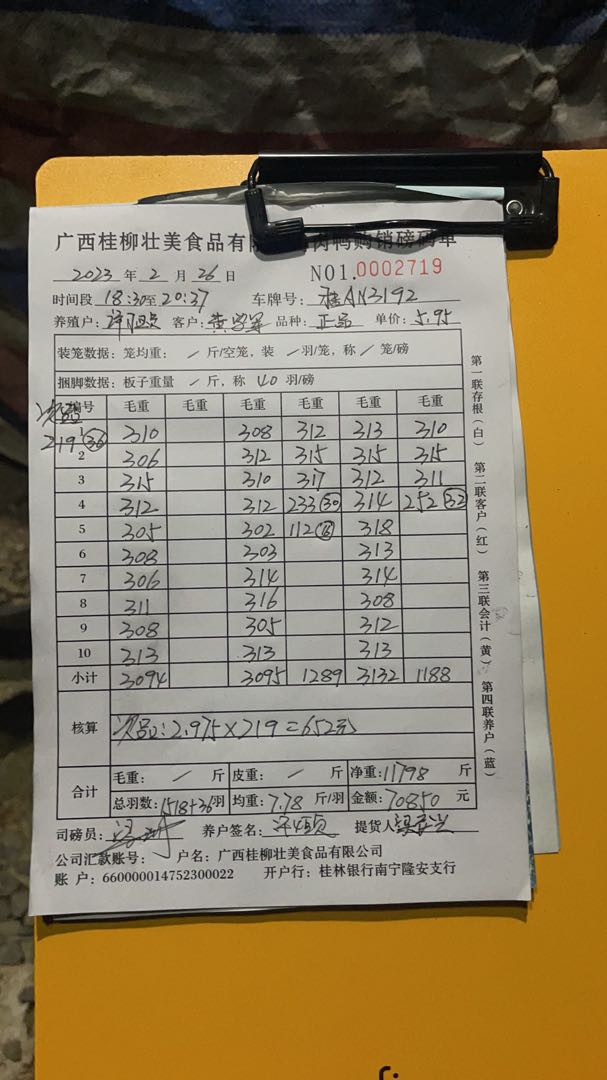 广西桂柳壮美食品有限 肉鸭购销磅码单
2023 年 2 月 26 日 NO1.0002719
时间段 18:30至20:37 车牌号: 桂AN3192
养殖户: 客户: 黄 军 品种: 正品 单价: 5.95
装笼数据: 笼均重: / 斤/空笼, 装 / 羽/笼, 称 / 笼/磅
捆脚数据: 板子重量 / 斤, 称 40 羽/磅
次品 编号 毛重 毛重 毛重 毛重 毛重 毛重
219 36
1 310 308 312 313 310
2 306 312 315 315 315
3 315 310 317 312 311
4 312 312 233 30 314 252 32
5 305 302 112 318
6 308 303 313
7 306 314 314
8 311 316 308
9 308 305 312
10 313 313 313
小计 3094 3095 1289 3132 1188
核算 次品:2.975×219=652元
合计 毛重: / 斤 皮重: / 斤 净重:11798 斤
总羽数:1518+36羽 均重:7.78 斤/羽 金额:70850 元
司磅员: 养户签名: 提货人
公司汇款账号: 户名: 广西桂柳壮美食品有限公司
账 户: 660000014752300022 开户行: 桂林银行南宁隆安支行
第一联存根(白) 第二联客户(红) 第三联会计(黄) 第四联养户(蓝)